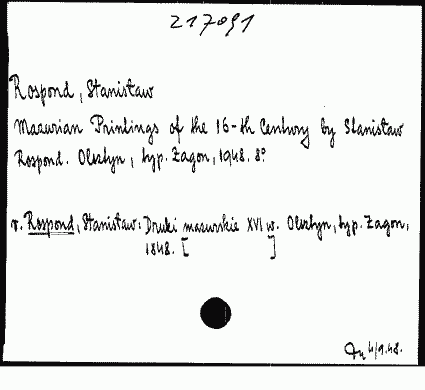 217091
Rospond, Stanisław
Mazurian Printings of the 16-th Century by Stanisław
Rospond. Olsztyn, typ. Zagon, 1948. 8°
v. Rospond, Stanisław: Druki mazurskie XVI w. Olsztyn, typ. Zagon,
1848. [ ]
4/9.48.